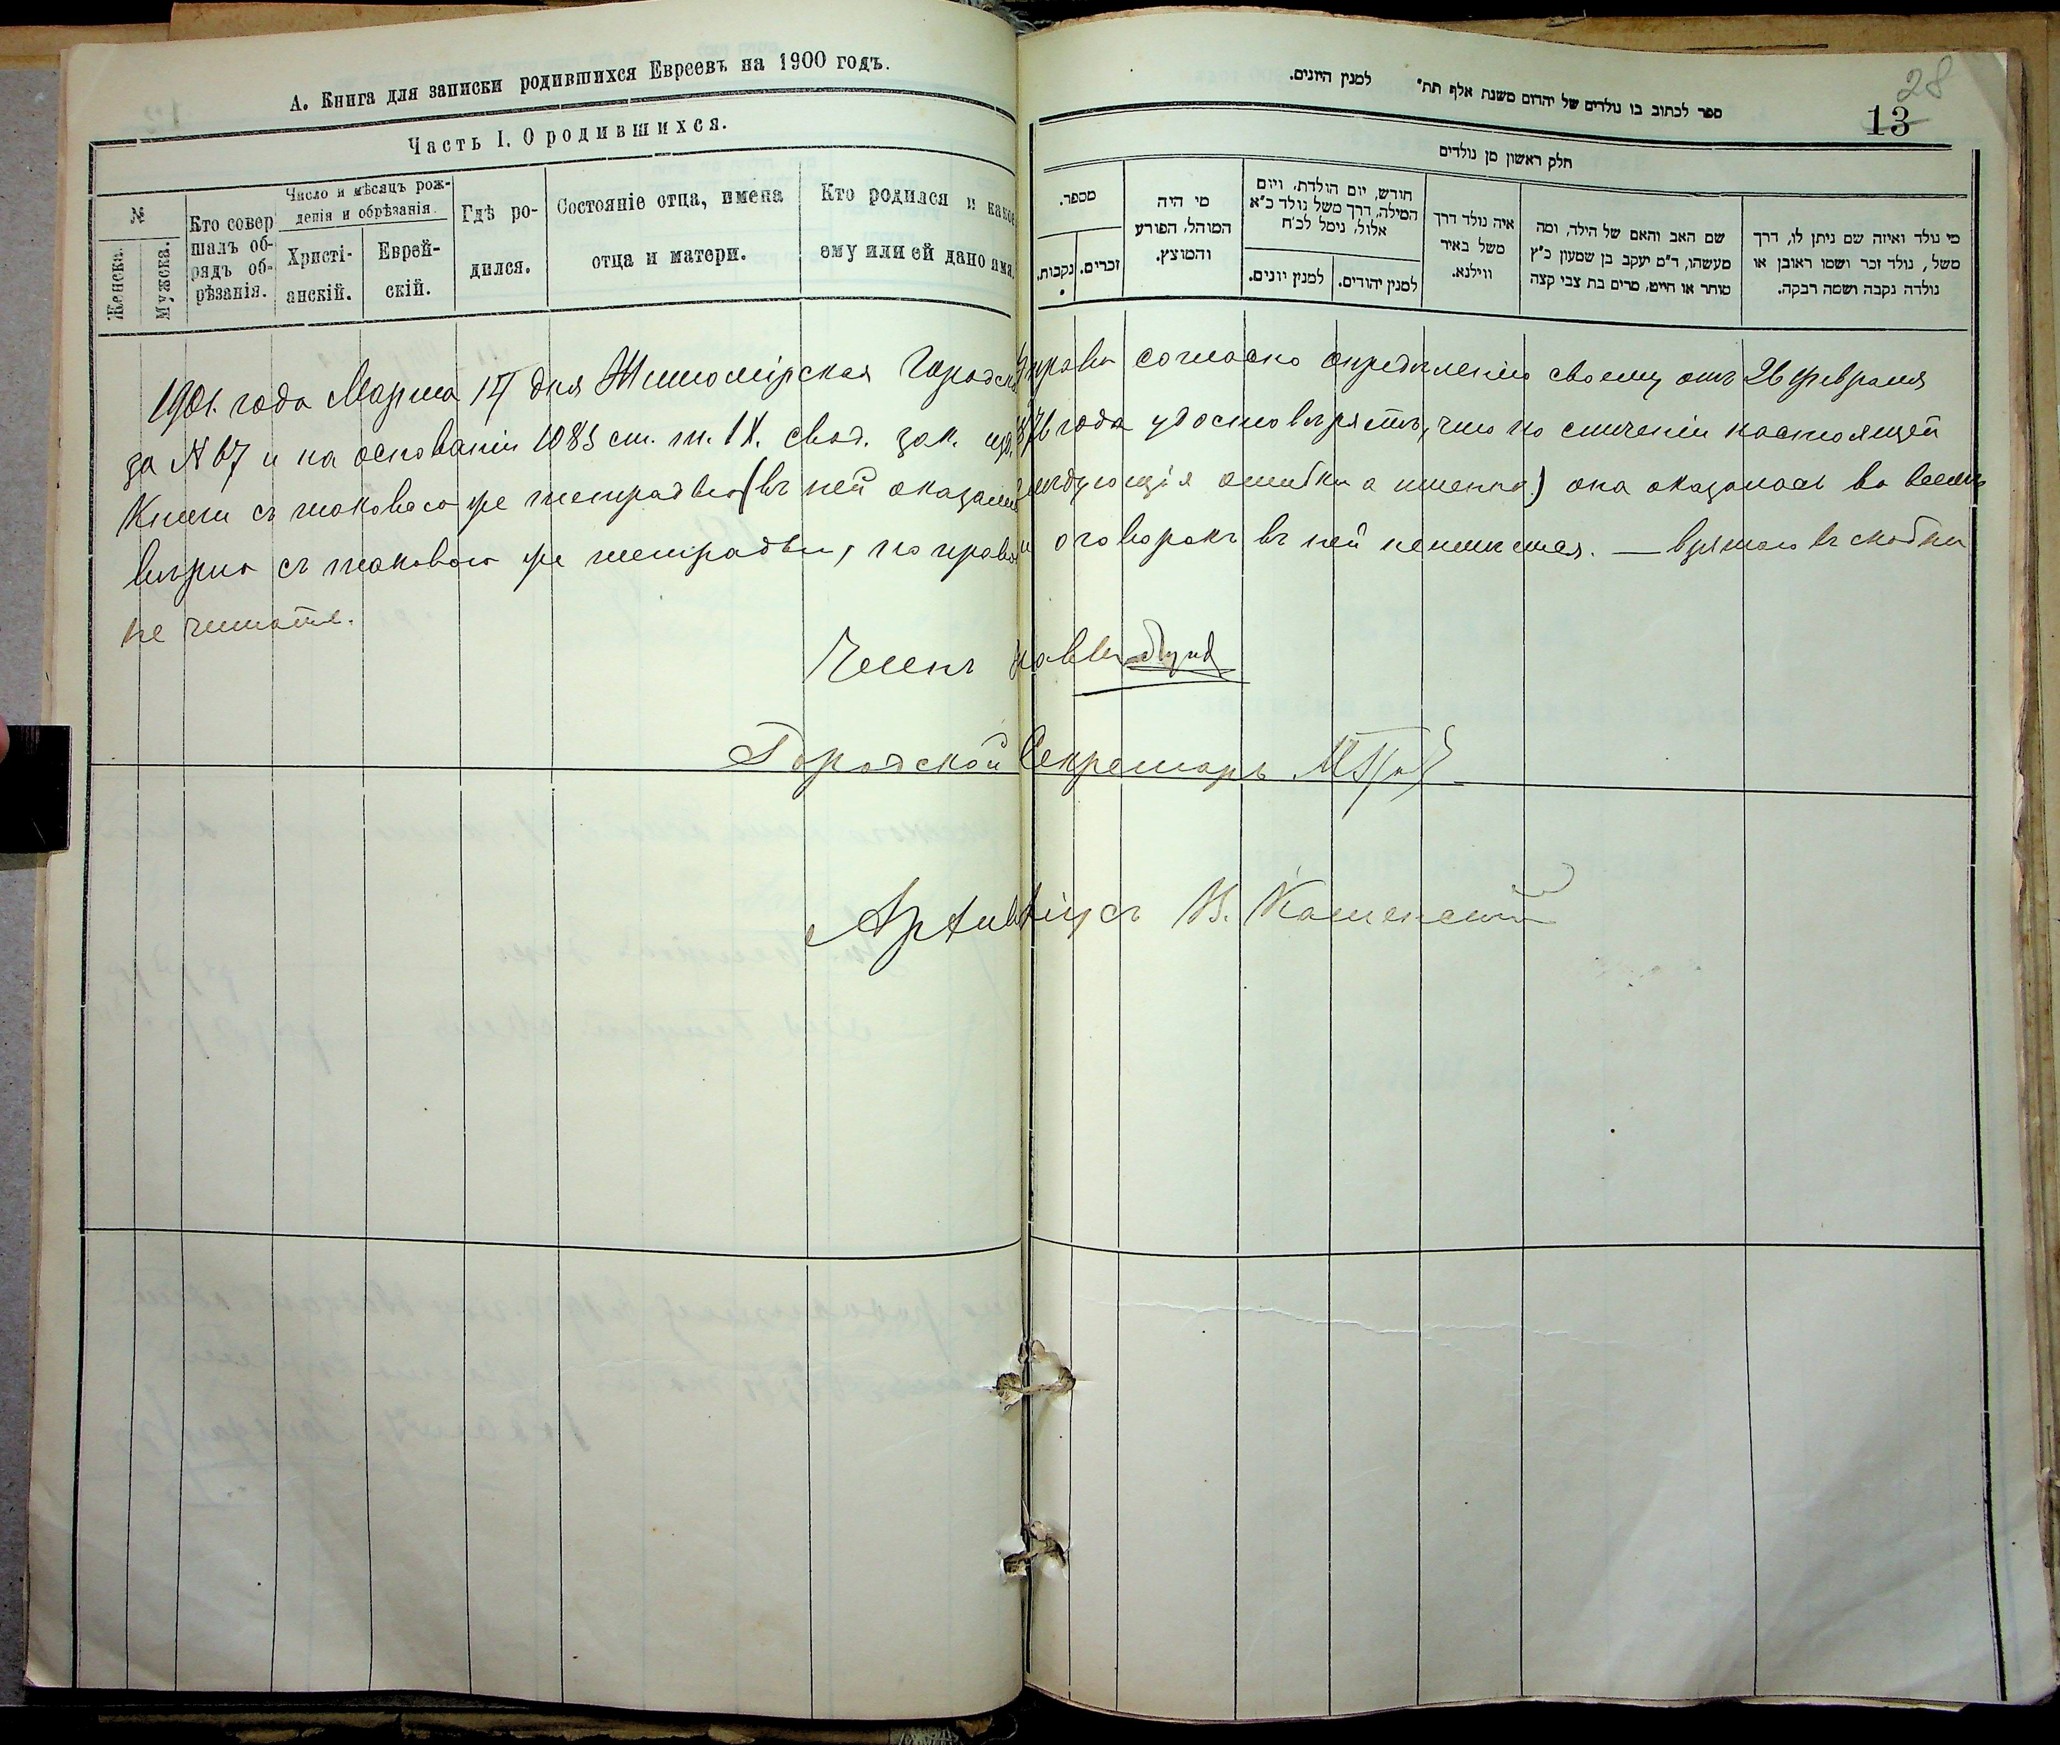 А. Книга для записки родившихся Евреевъ на 1900 годъ.
Часть I. О родившихся.
№
Женска.
Мужска.
Кто совер
шалъ об-
рядъ об-
рѣзанія.
Число и мѣсяцъ рож-
денія и обрѣзанія.
Христі-
анскій.
Еврей-
скій.
Гдѣ ро-
дился.
Состояніе отца, имена
отца и матери.
Кто родился и какое
ему или ей дано имя.
ספר לכתוב בו נולדים של יהדים משנת אלף תת״ למנין היונים.
28
13
חלק ראשון מן נולדים
מספר.
נקבות.
זכרים.
מי היה
המוהל, הפורע
והמוצץ.
חודש, יום הולדת, ויום
המילה, דרך משל נולד כ״א
אלול, נימל לכ״ח
למנין יונים.
למנין יהודים.
איה נולד דרך
משל באיר
ווילנא.
שם האב והאם של הילד, ומה
מעשהו, ד״מ יעקב בן שמעון כ״ץ
סוחר או חייט, מרים בת צבי קצה
מי נולד ואיזה שם ניתן לו, דרך
משל, נולד זכר ושמו ראובן או
נולדה נקבה ושמה רבקה.
1901. года Марта 14 дня Житомірская Городская Управа согласно опредѣленію своему отъ 26 февраля
за N 67 и на основаніи 1083 ст. т. IX. свод. зак. изд. 1876 года удостовѣряетъ, что по сличеніи настоящей
Книги съ таковою же тетрадью (въ ней оказались слѣдующія ошибки а именно:) она оказалась во всемъ
вѣрна съ таковою же тетрадью, но правокъ и оговорокъ въ ней неимѣется. — взятаго въ скобки
не читать.
Членъ Управы
Городской Секретарь
Архиваріусъ В. Каменскій